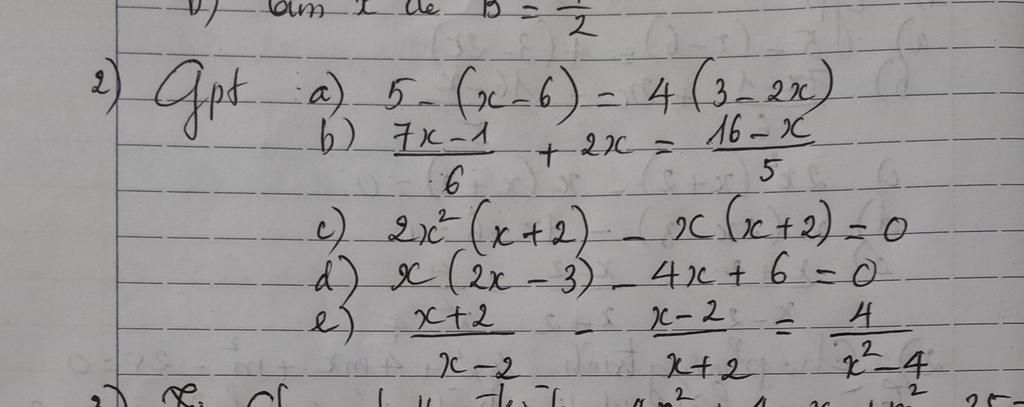 b) tìm x để B = 1/2
2) Gpt a) 5 - (x - 6) = 4 (3 - 2x)
b) (7x - 1)/6 + 2x = (16 - x)/5
c) 2x² (x + 2) - x (x + 2) = 0
d) x (2x - 3) - 4x + 6 = 0
e) (x + 2)/(x - 2) - (x - 2)/(x + 2) = 4/(x² - 4)